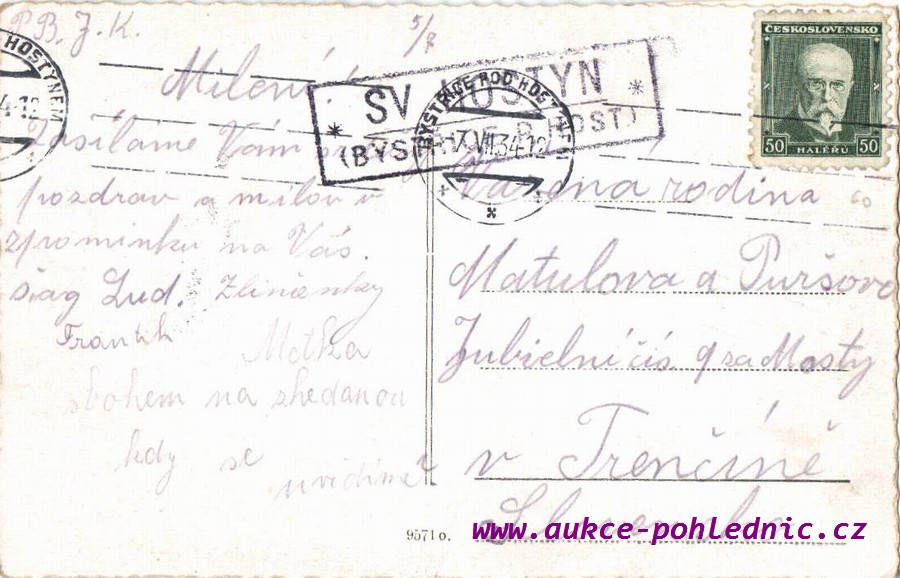 P. B. J. K.
5/7
Milení!
Zasílame Vám
pozdrav a milou v
zpominku na Vás.
Lud. Zlinenky
Frantik
Metka
sbohem na shedanou
kdy se
uvidíme?
HOSTÝNEM
4-12
* SV. HOSTÝN *
(BYSTŘICE P. HOST)
BYSTŘICE POD HOSTÝNEM
7.VII.34-12
ČESKOSLOVENSKO
50 HALÉŘŮ 50
Vážená rodina
Matulova a Puršova
Jubielní čís. 9 za Mosty
v Trenčíně
Slovensko
9571 o.
www.aukce-pohlednic.cz